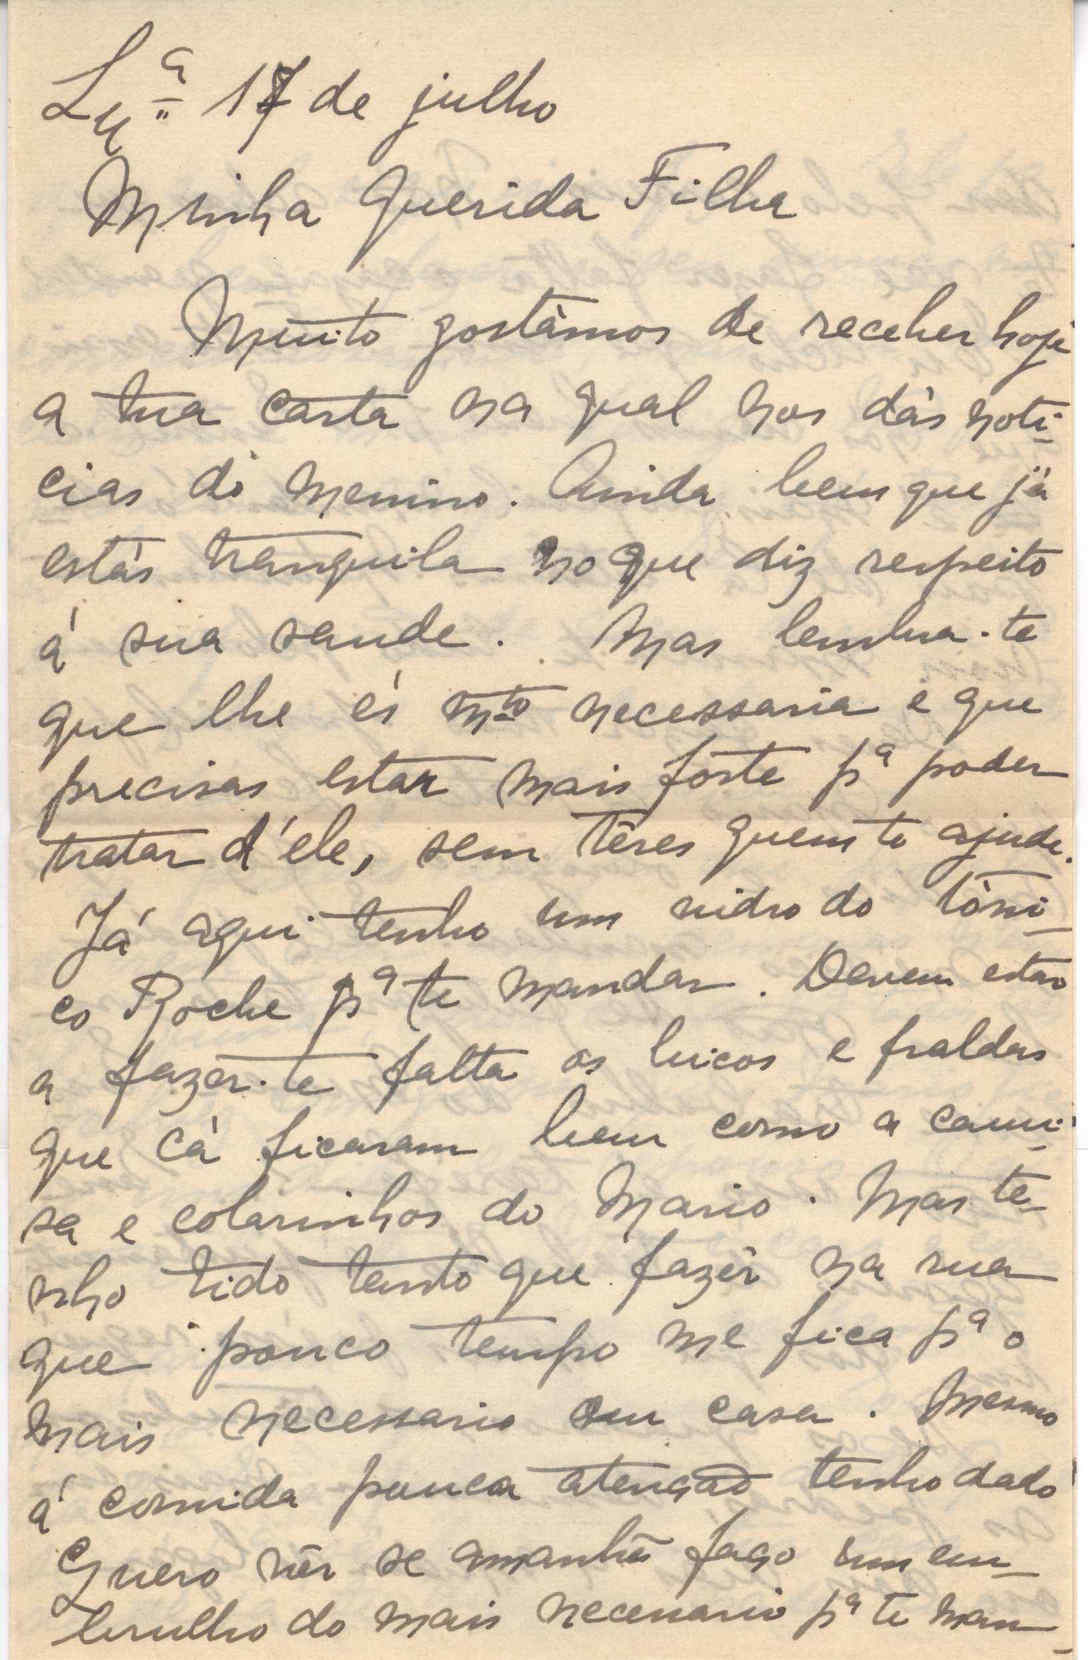 Lxª 17 de julho
Minha Querida Filha
Muito gostàmos de receber hoje
a tua carta na qual nos dás noti-
cias do menino. Ainda bem que já
estás tranquila no que diz respeito
á sua saude. Mas lembra-te
que lhe és mto necessaria e que
precisas estar mais forte pª poder
tratar d'ele, sem têres quem te ajude.
Já aqui tenho um vidro do tóni-
co Roche pª te mandar. Devem estar
a fazer-te falta os bicos e fraldas
que cá ficaram bem como a cami-
sa e colarinhos do Mario. Mas te-
nho tido tanto que fazêr na rua
que pouco tempo me fica pª o
mais necessario em casa. Mesmo
á comida pouca atenção tenho dado
Quero vêr se amanhã faço um em-
brulho do mais necessario pª te man-